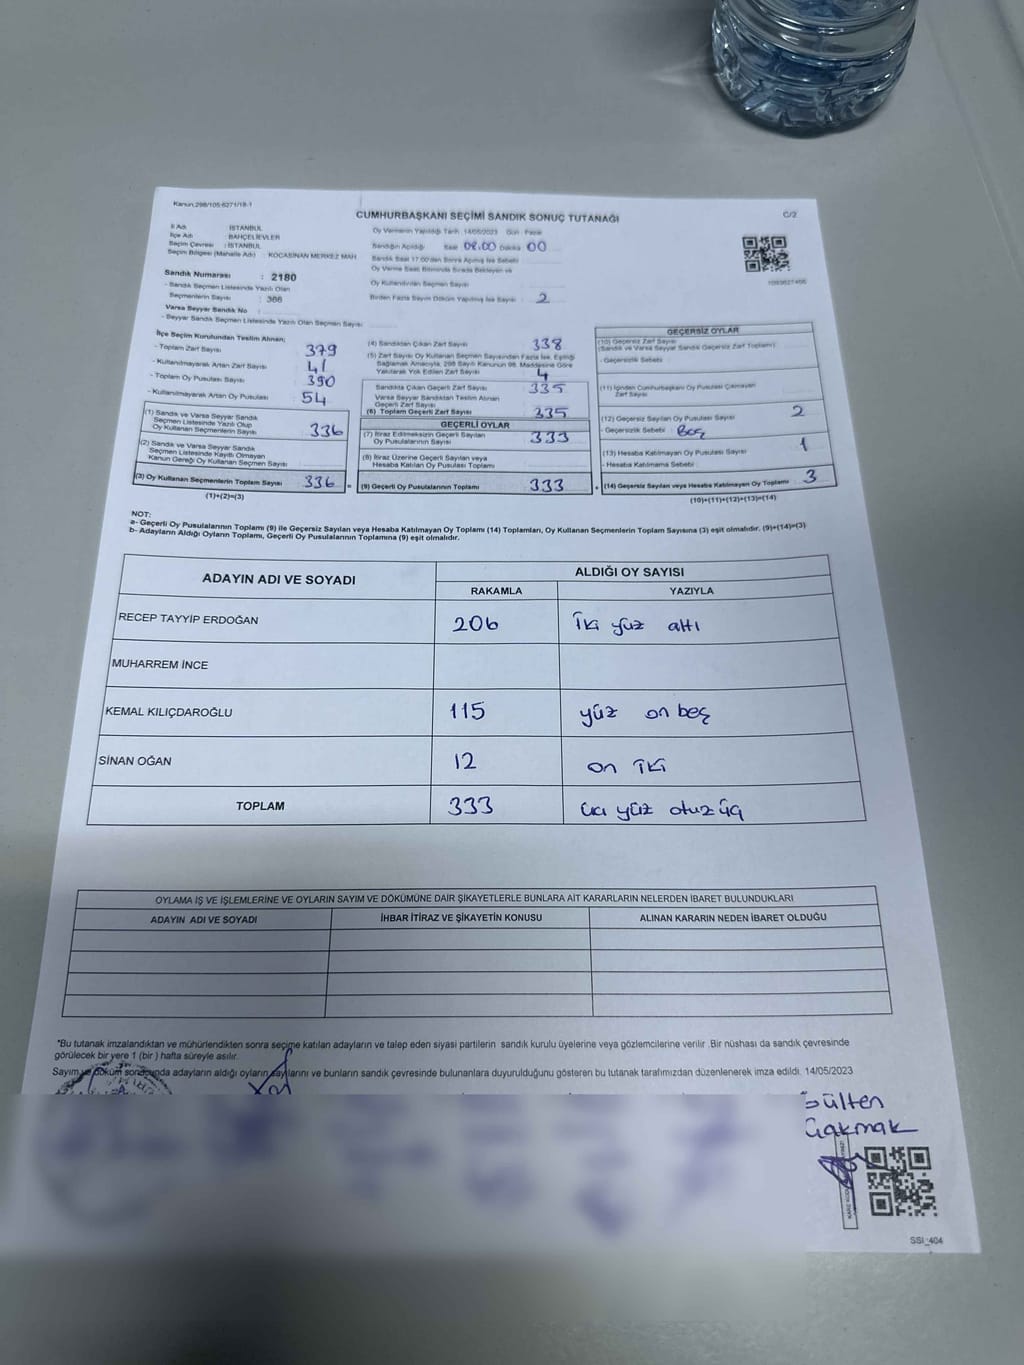 Kanun:298/105:6271/18-1
CUMHURBAŞKANI SEÇİMİ SANDIK SONUÇ TUTANAĞI
C/2
İl Adı : İSTANBUL
İlçe Adı : BAHÇELİEVLER
Seçim Çevresi : İSTANBUL
Seçim Bölgesi (Mahalle Adı) : KOCASİNAN MERKEZ MAH
Sandık Numarası : 2180
- Sandık Seçmen Listesinde Yazılı Olan
Seçmenlerin Sayısı : 366
Varsa Seyyar Sandık No
- Seyyar Sandık Seçmen Listesinde Yazılı Olan Seçmen Sayısı
Oy Vermenin Yapıldığı Tarih 14/05/2023 Gün : Pazar
Sandığın Açıldığı Saat 08.00 Dakika 00
Sandık Saat 17:00'den Sonra Açılmış İse Sebebi
Oy Verme Saati Bitiminde Sırada Bekleyen ve
Oy Kullandırılan Seçmen Sayısı
Birden Fazla Sayım Döküm Yapılmış İse Sayısı 2
İlçe Seçim Kurulundan Teslim Alınan;
- Toplam Zarf Sayısı 379
- Kullanılmayarak Artan Zarf Sayısı 41
- Toplam Oy Pusulası Sayısı 390
- Kullanılmayarak Artan Oy Pusulası 54
(1) Sandık ve Varsa Seyyar Sandık
Seçmen Listesinde Yazılı Olup
Oy Kullanan Seçmenlerin Sayısı 336
(2) Sandık ve Varsa Seyyar Sandık
Seçmen Listesinde Kayıtlı Olmayan
Kanun Gereği Oy Kullanan Seçmen Sayısı
(3) Oy Kullanan Seçmenlerin Toplam Sayısı 336
(1)+(2)=(3)
(4) Sandıktan Çıkan Zarf Sayısı 338
(5) Zarf Sayısı Oy Kullanan Seçmen Sayısından Fazla İse, Eşitliği
Sağlamak Amacıyla, 298 Sayılı Kanunun 98. Maddesine Göre
Yakılarak Yok Edilen Zarf Sayısı 4
Sandıkta Çıkan Geçerli Zarf Sayısı 335
Varsa Seyyar Sandıktan Teslim Alınan
Geçerli Zarf Sayısı
(6) Toplam Geçerli Zarf Sayısı 335
GEÇERLİ OYLAR
(7) İtiraz Edilmeksizin Geçerli Sayılan
Oy Pusulalarının Sayısı 333
(8) İtiraz Üzerine Geçerli Sayılan veya
Hesaba Katılan Oy Pusulası Toplamı
= (9) Geçerli Oy Pusulalarının Toplamı 333
GEÇERSİZ OYLAR
(10) Geçersiz Zarf Sayısı
(Sandık ve Varsa Seyyar Sandık Geçersiz Zarf Toplamı)
- Geçersizlik Sebebi
(11) İçinden Cumhurbaşkanı Oy Pusulası Çıkmayan
Zarf Sayısı
(12) Geçersiz Sayılan Oy Pusulası Sayısı 2
- Geçersizlik Sebebi Boş
(13) Hesaba Katılmayan Oy Pusulası Sayısı 1
- Hesaba Katılmama Sebebi
+ (14) Geçersiz Sayılan veya Hesaba Katılmayan Oy Toplamı 3
(10)+(11)+(12)+(13)=(14)
NOT:
a- Geçerli Oy Pusulalarının Toplamı (9) ile Geçersiz Sayılan veya Hesaba Katılmayan Oy Toplamı (14) Toplamları, Oy Kullanan Seçmenlerin Toplam Sayısına (3) eşit olmalıdır. (9)+(14)=(3)
b- Adayların Aldığı Oyların Toplamı, Geçerli Oy Pusulalarının Toplamına (9) eşit olmalıdır.
ADAYIN ADI VE SOYADI
ALDIĞI OY SAYISI
RAKAMLA YAZIYLA
RECEP TAYYİP ERDOĞAN 206 İki yüz altı
MUHARREM İNCE
KEMAL KILIÇDAROĞLU 115 yüz on beş
SİNAN OĞAN 12 on iki
TOPLAM 333 üç yüz otuz üç
OYLAMA İŞ VE İŞLEMLERİNE VE OYLARIN SAYIM VE DÖKÜMÜNE DAİR ŞİKAYETLERLE BUNLARA AİT KARARLARIN NELERDEN İBARET BULUNDUKLARI
ADAYIN ADI VE SOYADI İHBAR İTİRAZ VE ŞİKAYETİN KONUSU ALINAN KARARIN NEDEN İBARET OLDUĞU
"Bu tutanak imzalandıktan ve mühürlendikten sonra seçime katılan adayların ve talep eden siyasi partilerin sandık kurulu üyelerine veya gözlemcilerine verilir .Bir nüshası da sandık çevresinde
görülecek bir yere 1 (bir ) hafta süreyle asılır.
Sayım ve döküm sonucunda adayların aldığı oyların sayılarını ve bunların sandık çevresinde bulunanlara duyurulduğunu gösteren bu tutanak tarafımızdan düzenlenerek imza edildi. 14/05/2023
Gülten
Çakmak
SSI_404